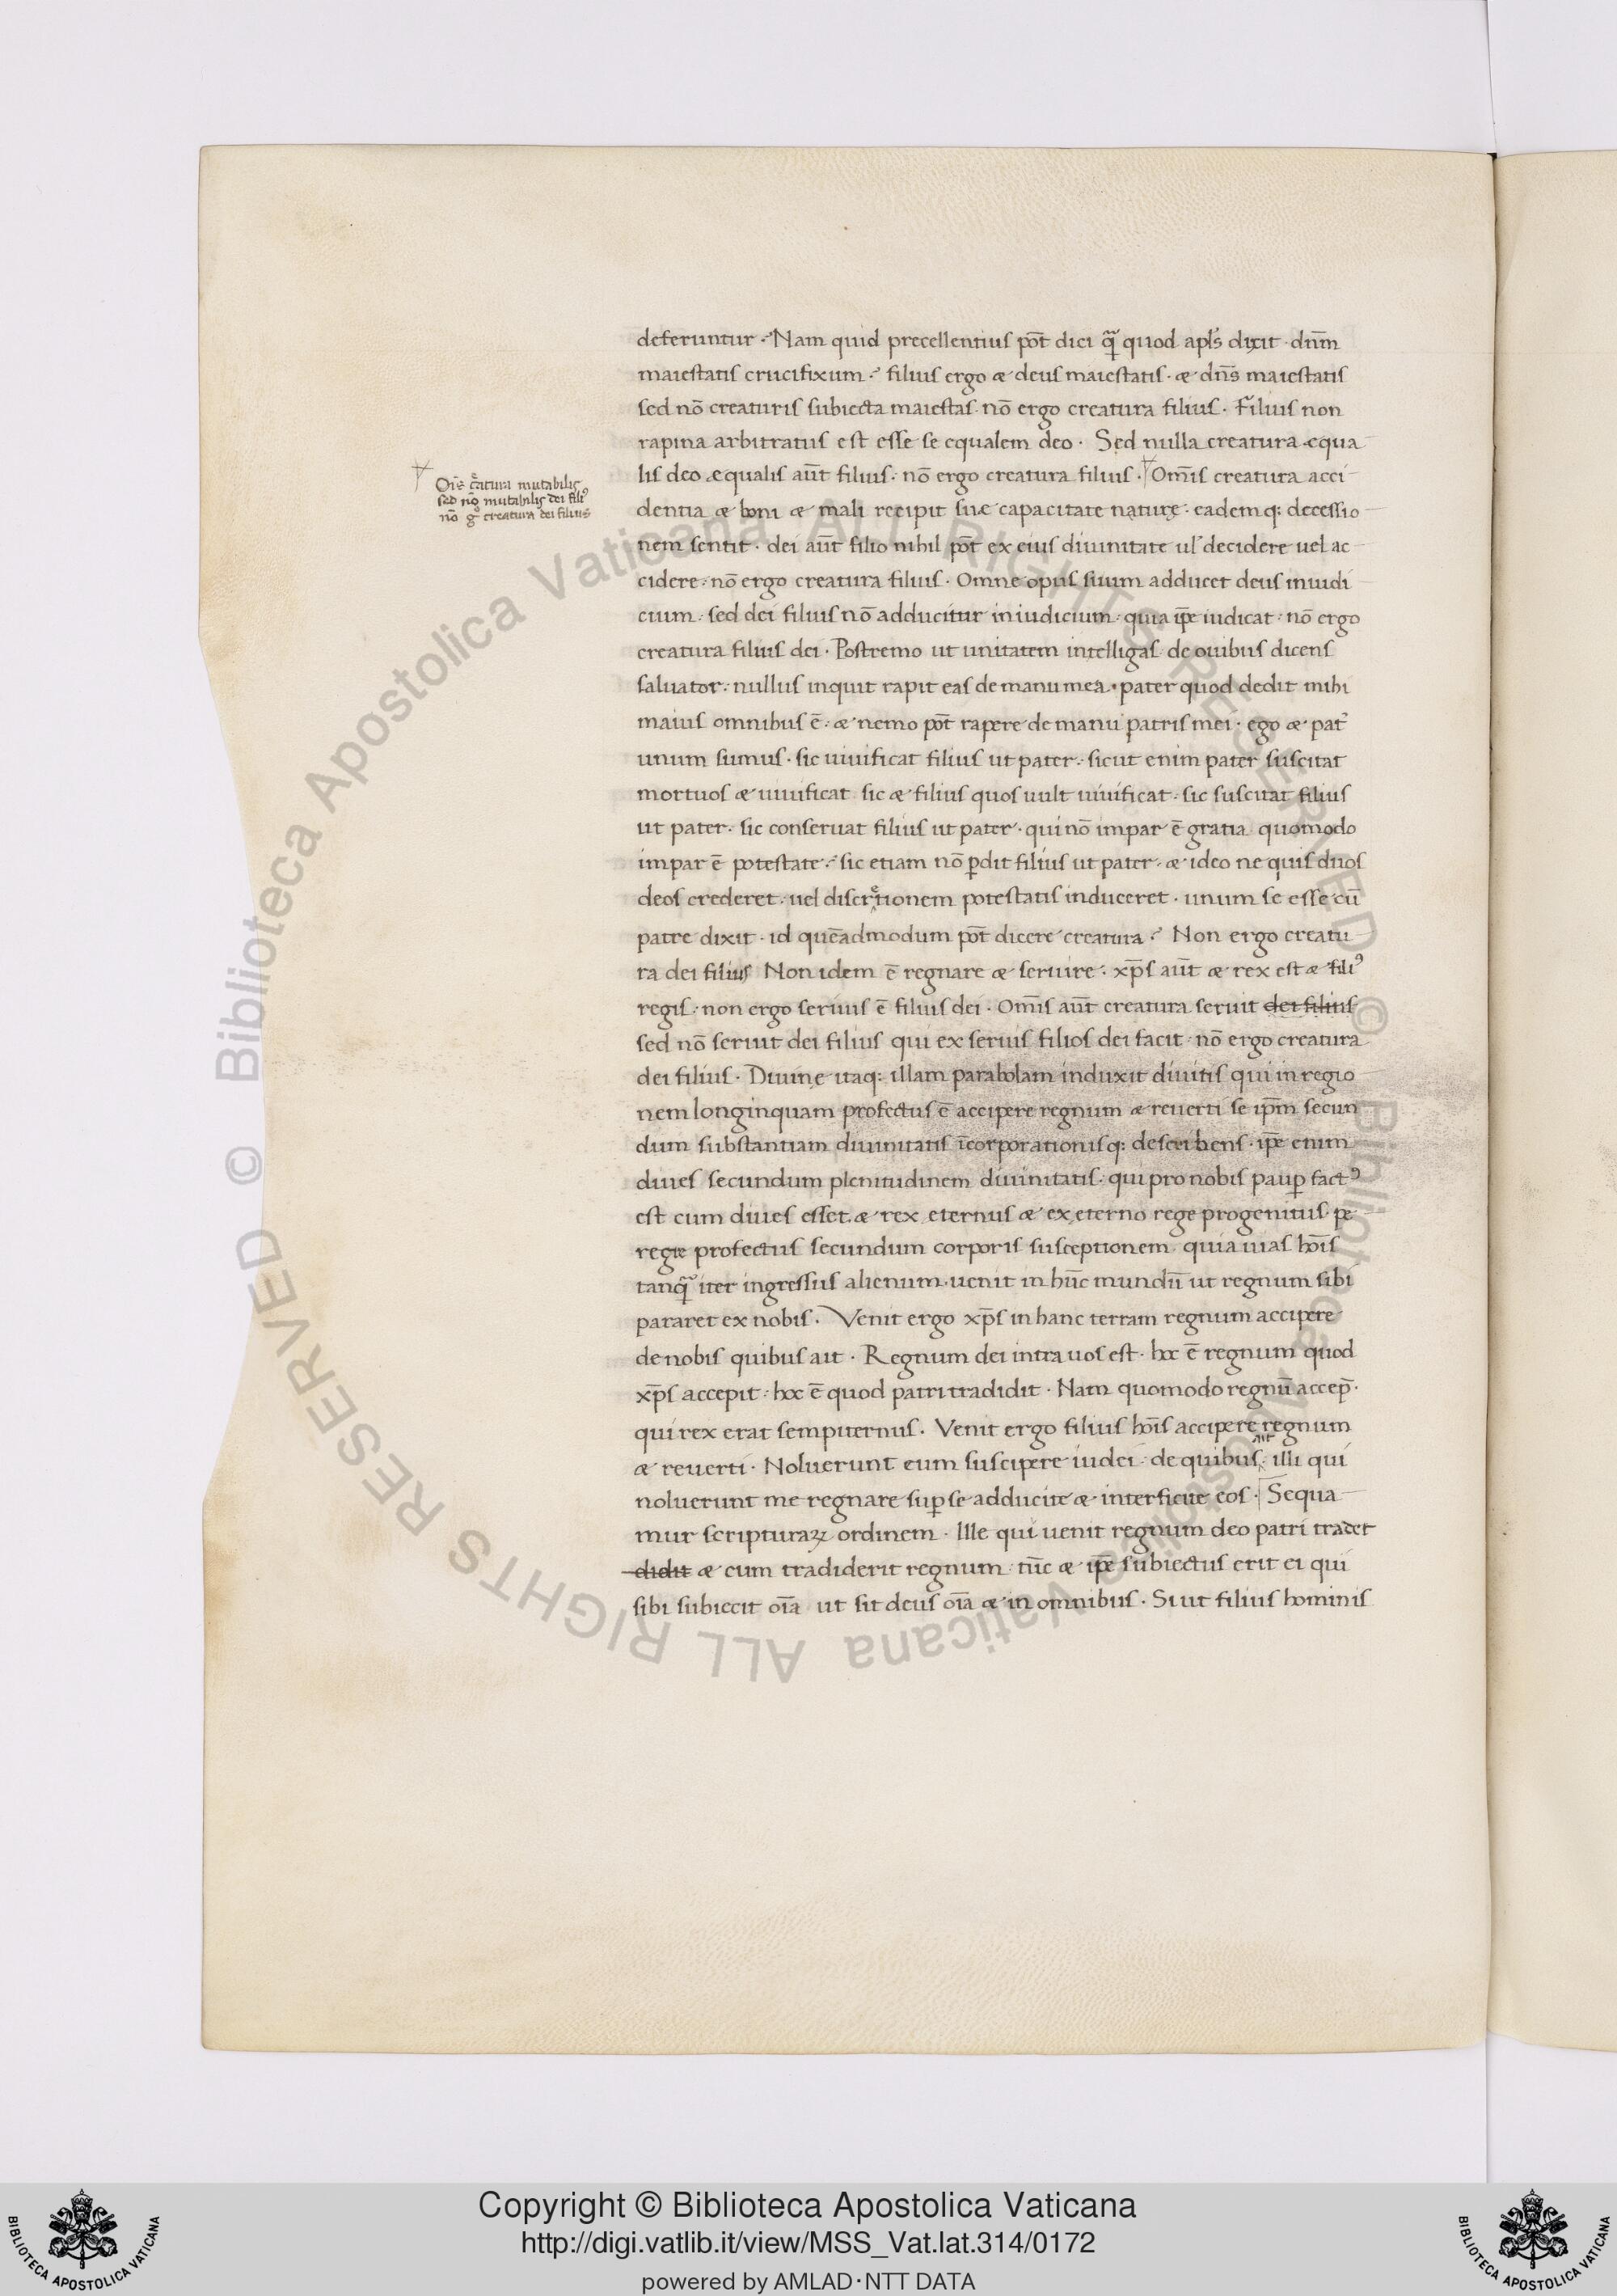 deferuntur? Nam quid precellentius pōt dici q̄ quod apl's dixit · dn̄m
maiestatis crucifixum? filius ergo & deus maiestatis · & dn̄s maiestatis
sed nō creaturis subiecta maiestas · nō ergo creatura filius · Filius non
rapina arbitratus est esse se equalem deo · Sed nulla creatura equa
lis deo æqualis aūt filius · nō ergo creatura filius · Om̄is creatura acci
Oīs c̄atura mutabilis
sed nō mutabilis dei fili9
nō gͦ creatura dei filius
dentia & boni & mali recipit suæ capacitate naturę · eademq: decessio
nem sentit · dei aūt filio nihil pōt ex eius diuinitate ul' decidere uel ac
cidere · nō ergo creatura filius · Omne opus suum adducet deus in iudi
cium · sed dei filius nō adducitur in iudicium · quia ip̄e iudicat · nō ergo
creatura filius dei · Postremo ut unitatem intelligas · de ouibus dicens
saluator · nullus inquit rapit eas de manu mea · pater quod dedit mihi
maius omnibus ē · & nemo pōt rapere de manu patris mei · ego & pat̄
unum sumus · sic uiuificat filius ut pater · sicut enim pater suscitat
mortuos & uiuificat sic & filius quos uult uiuificat · sic suscitat filius
ut pater · sic conseruat filius ut pater · qui nō impar ē gratia quomodo
impar ē potestate? sic etiam nō ꝑdit filius ut pater · & ideo ne quis duos
deos crederet · uel discretionem potestatis induceret · unum se esse cū
patre dixit · id quēadmodum pōt dicere creatura? Non ergo creatu
ra dei filius Non idem ē regnare & seruire · xp̄s aūt & rex est & fili9
regis · non ergo seruus ē filius dei · Om̄is aūt creatura seruit dei filius
sed nō seruit dei filius qui ex seruis filios dei facit · nō ergo creatura
dei filius · Diuine itaq: illam parabolam induxit diuitis qui in regio
nem longinquam profectus ē accipere regnum & reuerti se ip̄m secun
dum substantiam diuinitatis īcorporationisq: describens · ip̄e enim
diues secundum plenitudinem diuinitatis · qui pro nobis pauꝑ fact9
est cum diues esset & rex eternus & ex eterno rege progenitus · pe
regre profectus secundum corporis susceptionem · quia uias hoīs
tanq̄ iter ingressus alienum · uenit in hūc mundū ut regnum sibi
pararet ex nobis · Venit ergo xp̄s in hanc terram regnum accipere
de nobis quibus ait · Regnum dei intra uos est · hoc ē regnum quod
xp̄s accepit · hoc ē quod patri tradidit · Nam quomodo regnū accep̄ ·
qui rex erat sempiternus · Venit ergo filius hoīs accipere regnum
& reuerti · Noluerunt eum suscipere iudei · de quibus ait illi qui
noluerunt me regnare suꝑ se adducite & interficite eos · Sequa
mur scripturaꝝ ordinem · Ille qui uenit regnum deo patri tradet
didit & cum tradiderit regnum · tūc & ip̄e subiectus erit ei qui
sibi subiecit oīa ut sit deus oīa & in omnibus · Si ut filius hominis
© Biblioteca Apostolica Vaticana ALL RIGHTS RESERVED © Biblioteca Apostolica Vaticana ALL RIGHTS RESERVED
Copyright © Biblioteca Apostolica Vaticana
http://digi.vatlib.it/view/MSS_Vat.lat.314/0172
powered by AMLAD·NTT DATA
BIBLIOTECA APOSTOLICA VATICANA
BIBLIOTECA APOSTOLICA VATICANA